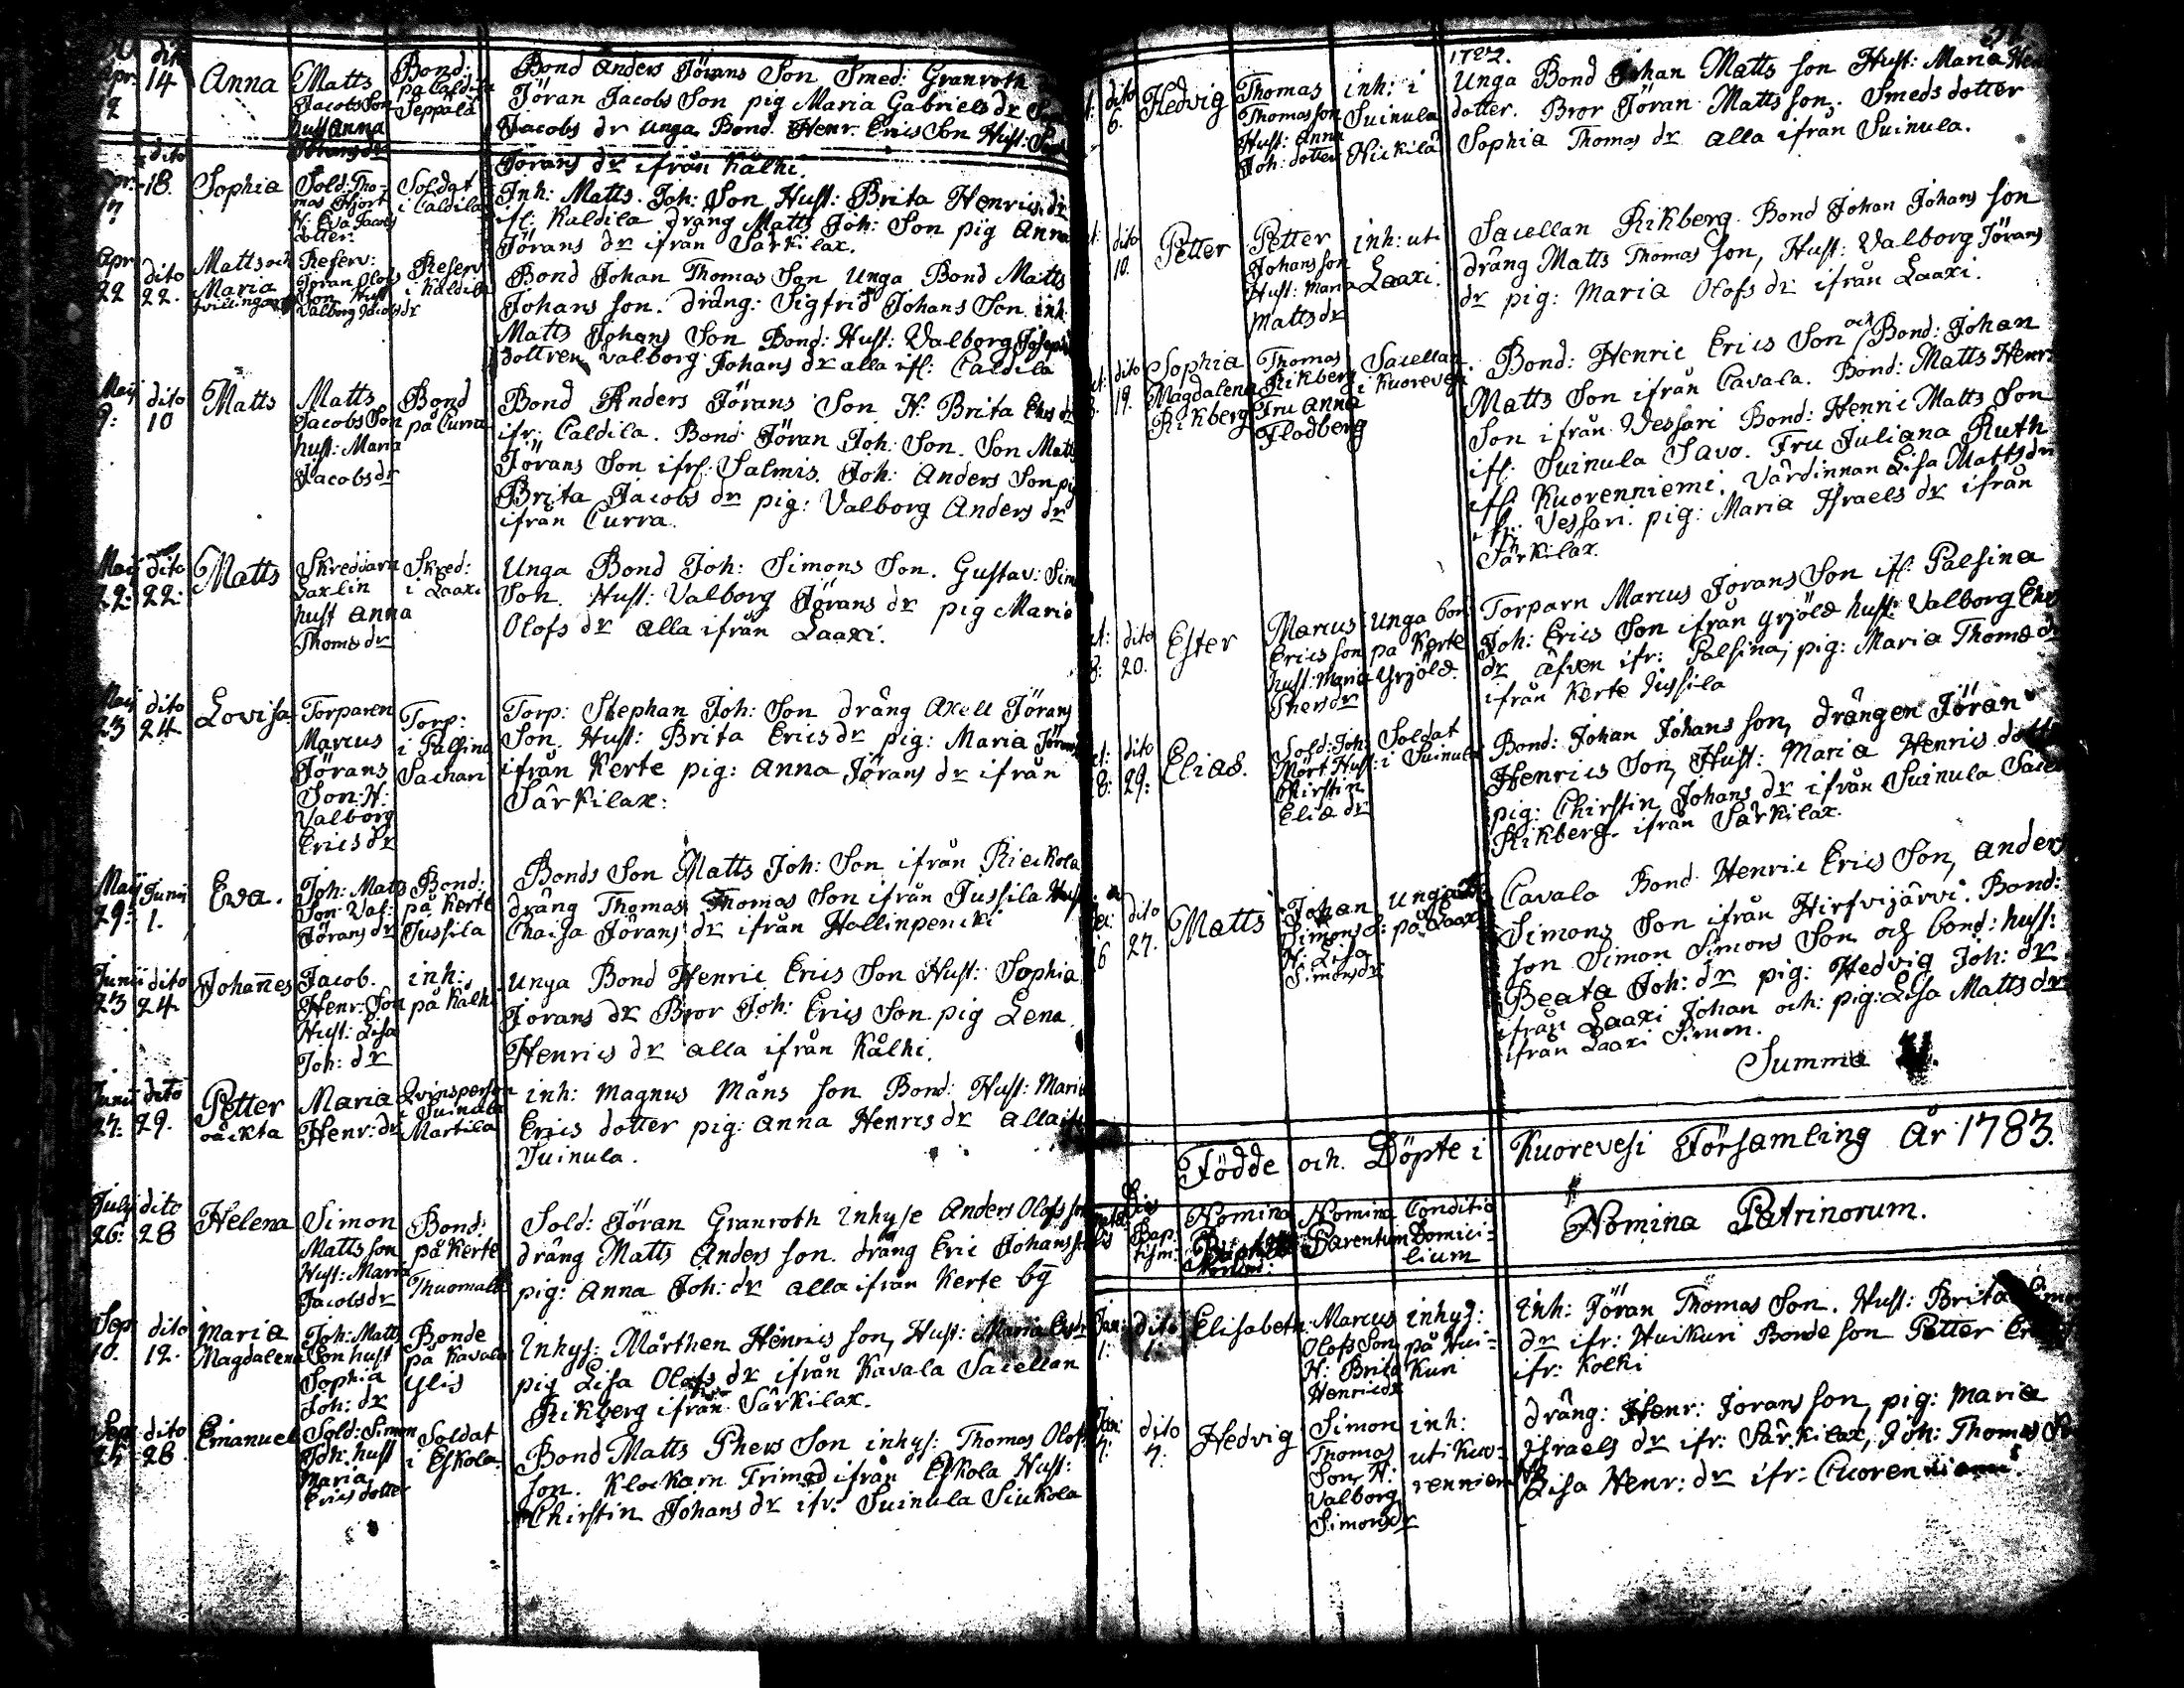 Apr: dito Anna Matts Bond: Bond Anders Jörans Son Smed: Granroth
14 Jacobs Son på Caldila Jöran Jacobs Son pig Maria Gabriels dr
hust Anna Seppälä Jacobs dr unga Bond Henr: Erics Son Hust:
Johans dr Jörans dr ifrån Kälki.
dito 18. Sophia Sold: Tho- Soldat Inh: Matts Joh: Son Hust: Brita Henrics dr
mas Hjort i Caldila if: Kaldila dräng Matts Joh: Son pig Anna
H: Eva Jacobs Jörans dr ifrån Särkilax.
dotter.
Apr 22 dito 22. Matts och Reserv: Reserv Bond Johan Thomas Son Unga Bond Matts
Maria Jöran Olofs i Kaldila Johans son. dräng: Sigfrid Johans Son. inh:
tvillingar Son Hust Matts Johans Son Bond: Hust: Valborg Josephs
Valborg Jacobs dr dottren Valborg Johans dr alla if: Caldila
Maij 9: dito 10 Matts Matts Bond Bond Anders Jörans Son H: Brita
Jacobs Son på Curra ifr: Caldila. Bond Jöran Joh: Son. Son Matts
hust: Maria Jörans Son ifr: Salmis. Joh: Anders Son pig
Jacobs dr Brita Jacobs dr pig: Valborg Anders dr
ifrån Curra.
Maij 22: dito 22: Matts Skredarn Skred: Unga Bond Joh: Simons Son. Gustav: Sim
Saxlin i Laaxi Son. Hust: Valborg Jörans dr pig Maria
hust Anna Olofs dr alla ifrån Laaxi.
Thoms dr
Maij 23 dito 24 Lovisa Torparen Torp: Torp: Stephan Joh: Son dräng Axell Jörans
Marcus i Palsina Son. Hust: Brita Erics dr pig: Maria Jörans
Jörans Sachari ifrån Kerte pig: Anna Jörans dr ifrån
Son: H: Särkilax:
Valborg
Erics dr
Maij 29: Junij 1. Eva. Joh: Matts Bond: Bonds Son Matts Joh: Son ifrån Rieckola
Son Val: på Kerte dräng Thomas Thomas Son ifrån Jussila Hust
Jörans dr Jussila Chaisa Jörans dr ifrån Hollinpencki
Junii 23 dito 24 Johannes Jacob. inh: Unga Bond Henric Erics Son Hust: Sophia
Henr: Son på Kälki Jörans dr Bror Joh: Erics Son pig Lena
Hust: Lisa Henrics dr alla ifrån Kälki.
Joh: dr
Junii 27: dito 29. Petter Maria Qvinsperson inh: Magnus Måns son Bond: Hust: Maria
oäckta Henr: dr i Suinula Erics dotter pig: Anna Henrs dr alla
Martila Suinula.
July 26: dito 28 Helena Simon Bond: Sold: Jöran Granroth inhyse Anders Olofs son
Matts son på Kerte dräng Matts Anders son. dräng Eric Johans son
Hust: Maria Thuomala pig: Anna Joh: dr alla ifrån Kerte by
Jacobs dr
Sep 10. dito 12. Maria Joh: Matts Bonde Inhys: Mårthen Henrics son, Hust: Maria
Magdalena Son hust på Kavala pig Lisa Olofs dr ifrån Kavala Sacellan
Sophia Ylis Rikberg ifrån Särkilax.
Joh: dr
Sep: dito 28 Emanuel Sold: Simon Soldat Bond Matts Phers Son inhys: Thomas Olofs
Joh: hust i Eskola son. Klockarn Trimod ifrån Eskola Hust:
Maria Chirstin Johans dr ifr: Suinula Siukola
Erics dotter
1782.
dito 6. Hedvig Thomas inh: i Unga Bond Johan Matts son Hust: Maria
Thomas son Suinula dotter. Bror Jöran Matts son. Smeds dotter
Hust: Anna Nickilä Sophia Thomas dr alla ifrån Suinula.
Joh: dotter
dito 10. Petter Petter inh: uti Sacellan Rikberg. Bond Johan Johans son
Johans son Laaxi. dräng Matts Thomas son, Hust: Valborg Jörans
Hust: Maria dr pig: Maria Olofs dr ifrån Laaxi.
Matts dr
dito 19. Sophia Thomas Sacellan Bond: Henric Erics Son och Bond: Johan
Magdalena Rikberg i Kuorevesi Matts Son ifrån Cavala. Bond: Matts Henr:
Rikberg Fru Anna Son ifrån Vessari Bond: Henric Matts Son
Flodberg if: Suinula Savo. Fru Juliana Ruth
if: Kuorenniemi. Värdinnan Lisa Matts dr
ifr: Vessari. pig: Maria Israels dr ifrån
Särkilax.
dito 20. Ester Marcus Unga bond Torparn Marcus Jörans Son if: Palsina
Erics son på Kerte Joh: Erics Son ifrån Yrjölä hust: Valborg
hust: Maria Yrjölä. dr äfven ifr: Palsina; pig: Maria Thoms dr
Phers dr ifrån Kerte Jussila
dito 29: Elias. Sold: Joh: Soldat Bond: Johan Johans son, drängen Jöran
Mört Hust: i Suinula Henrics Son, Hust: Maria Henrics dotter
Chirstin pig: Chirstin Johans dr ifrån Suinula
Elia dr Rikberg ifrån Särkilax.
dito 27. Matts Johan Unga Cavala Bond Henric Erics Son, Anders
Simons S: på Laaxi Simons Son ifrån Hirsvijärvi. Bond:
H: Lisa son Simon Simons Son och bond: hust:
Simons dr Beata Joh: dr pig: Hedvig Joh: dr
ifrån Laaxi Johan och: pig: Lisa Matts dr
ifrån Laaxi Simon.
Summa
Födde och Döpte i Kuorevesi Församling År 1783.
Dies Nomina Nomina Conditio Nomina Patrinorum.
Bap- Parentum Domici-
tism: lium
Jan: 1: dito 1: Elisabeth Marcus inhys: inh: Jöran Thomas Son. Hust: Brita
Olofs Son på Hui- dr ifr: Huikuri Bonde son Petter
H: Brita kuri ifr: Kolki
Henrics dr
Jan: 7: dito 7: Hedvig Simon inh: dräng: Henr: Jörans son, pig: Maria
Thomas uti Kuo- Israels dr ifr: Särkilax, Joh: Thomas
Son, H: renniemi Lisa Henr: dr ifr: Cuorenniemi
Valborg
Simons dr